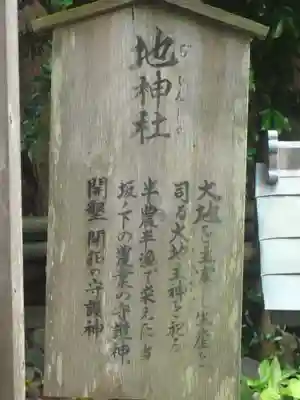 地神社
ぢじんしゃ
大地を主宰し生産を
司る大地主神を祀る
半農半漁で栄えた与
坂下の農業の守護神、
開墾 開拓の守護神